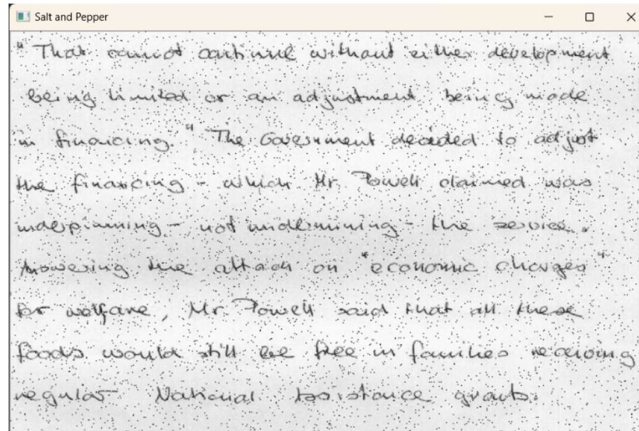 Salt and Pepper
"That cannot continue without either development
being limited or an adjustment being made
in financing." The Government decided to adjust
the financing - which Mr. Powell claimed was
underpinning - not undermining - the service.
Answering the attack on "economic charges"
for welfare, Mr. Powell said that all these
foods would still be free in families receiving
regular National Assistance grants.